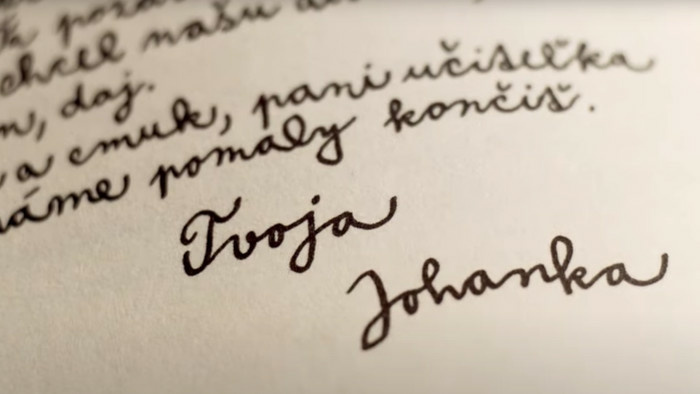 chcel našu
daj.
a cmuk, pani učiteľka
máme pomaly končiš.
Tvoja
Johanka